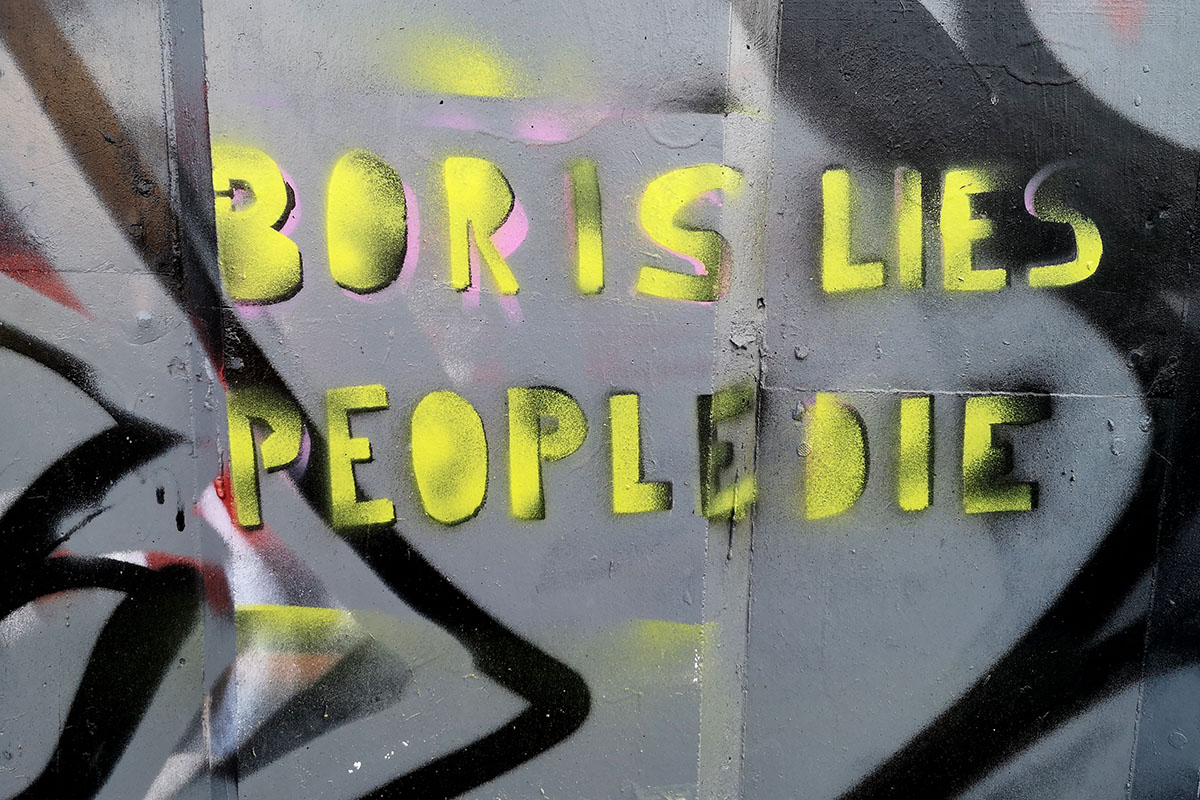 BORIS LIES
PEOPLE DIE